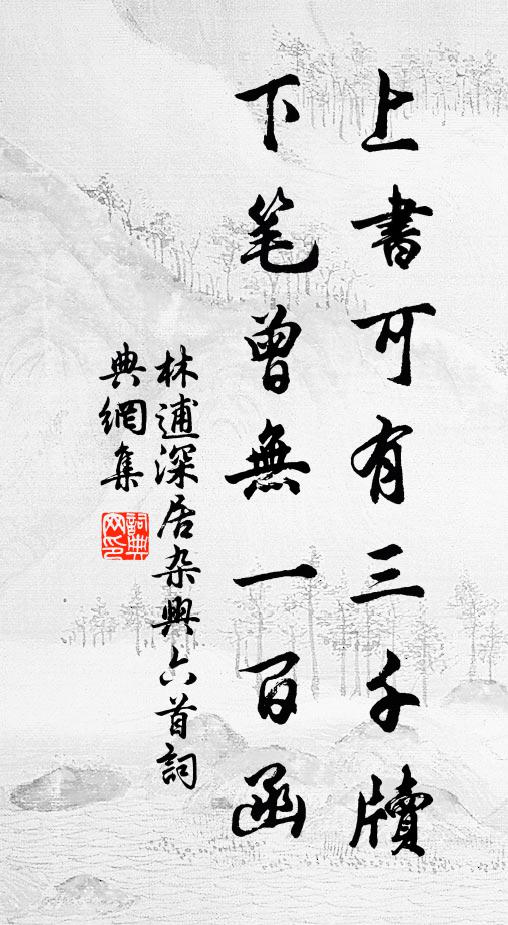 上書可有三千牘
下笔曾無一百函
林逋深居杂興六首詞
典網集
詞典网印